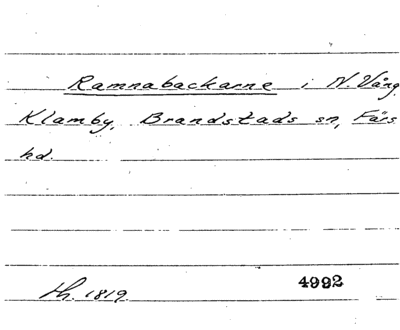 Ramnabackarne i N. Vång
Klamby, Brandstads sn, Färs
hd.
Th. 1819 4992